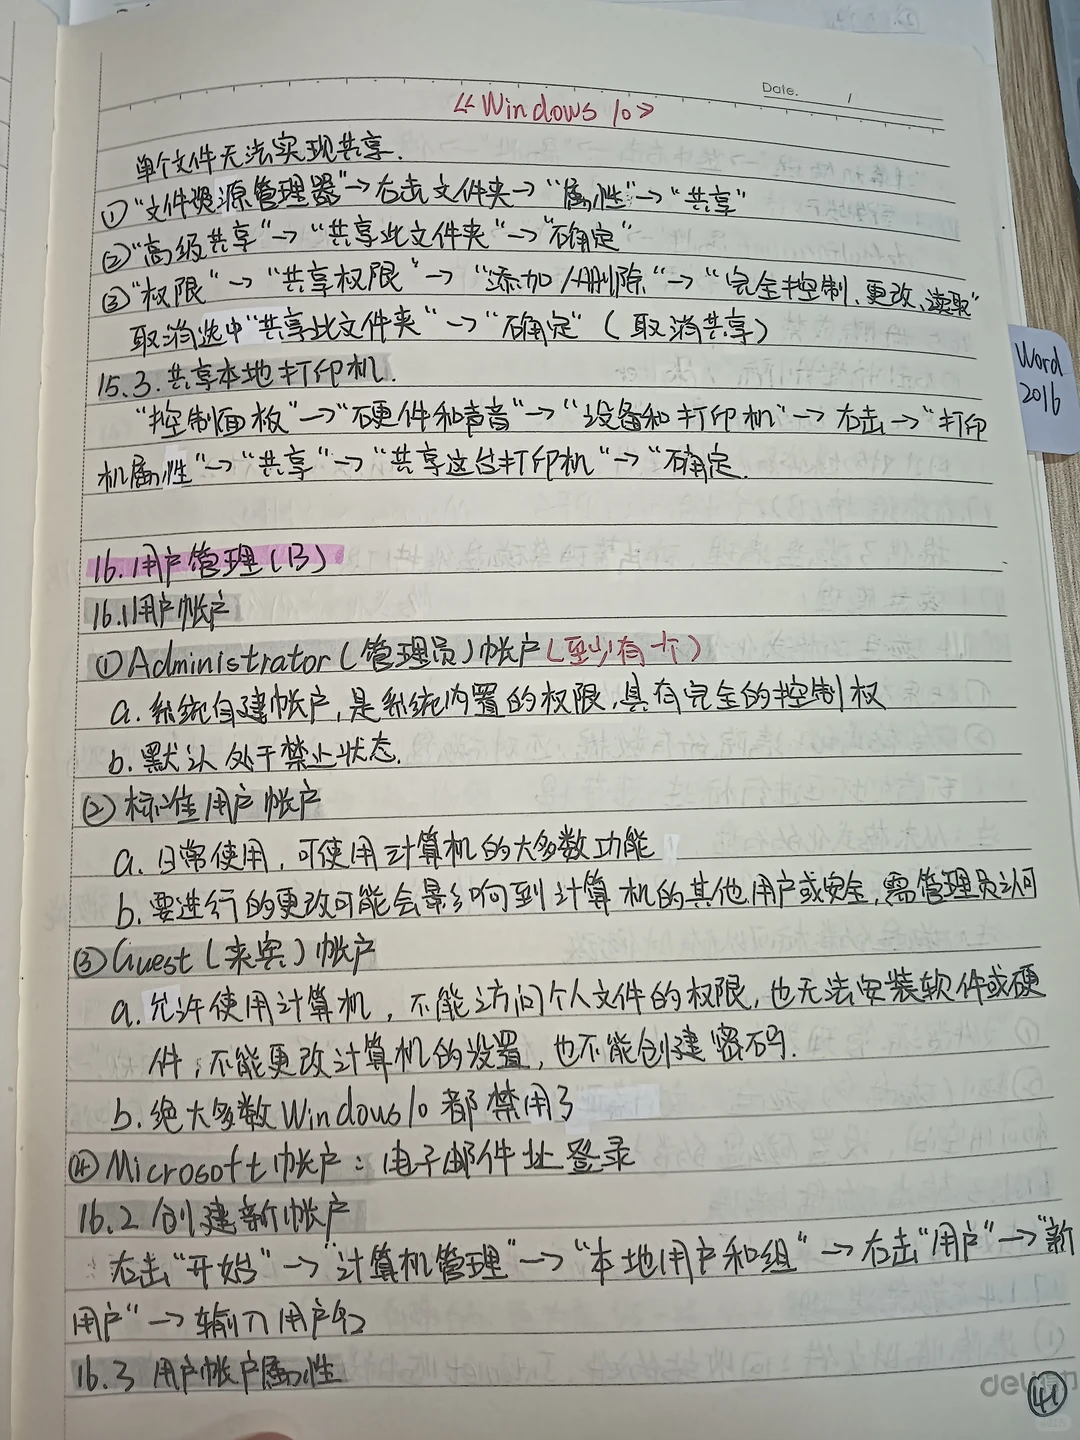 Date. /
《Windows 10》
单个文件无法实现共享.
①"文件资源管理器"→右击文件夹→"属性"→"共享"
②"高级共享"→"共享此文件夹"→"确定"
③"权限"→"共享权限"→"添加/删除"→"完全控制、更改、读取"
取消选中"共享此文件夹"→"确定"(取消共享)
15.3.共享本地打印机.
"控制面板"→"硬件和声音"→"设备和打印机"→右击→"打印
机属性"→"共享"→"共享这台打印机"→"确定.
Word
2016
16.1用户管理(B)
16.1用户帐户
①Administrator(管理员)帐户(至少有一个)
a.系统自建帐户,是系统内置的权限,具有完全的控制权
b.默认处于禁止状态.
②标准用户帐户
a.日常使用,可使用计算机的大多数功能
b.要进行的更改可能会影响到计算机的其他用户或安全,需管理员认可
③Guest(来宾)帐户
a.允许使用计算机,不能访问个人文件的权限,也无法安装软件或硬
件;不能更改计算机的设置,也不能创建密码.
b.绝大多数Windows10都禁用了
④Microsoft帐户:电子邮件址登录
16.2创建新帐户
右击"开始"→"计算机管理"→"本地用户和组"→右击"用户"→"新
用户"→输入用户名
16.3用户帐户属性
41